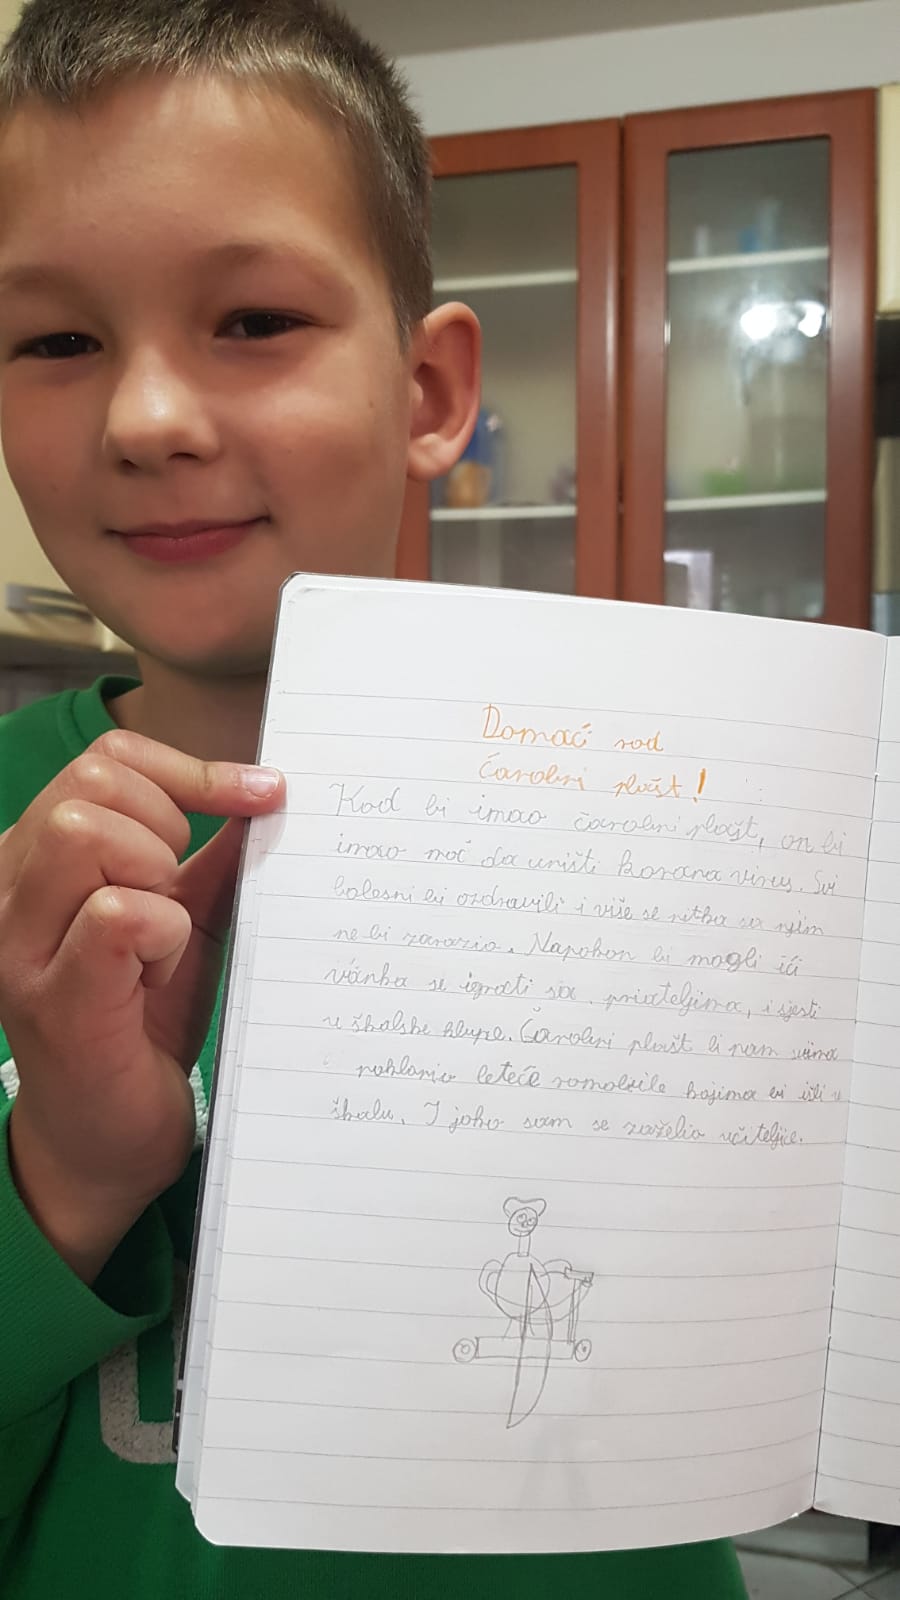 Domać rod
Čarobni plašt!
Kad bi imao čarobni plašt, on bi
imao moć da uništi korona virus. Svi
bolesni bi ozdravili i više se nitko sa njim
ne bi zarazio. Napokon bi mogli ići
vanka se igrati sa prijateljima, i sjesti
u školske klupe. Čarobni plašt bi nam svima
poklanio leteće romobile kojima bi išli u
školu. I joko sam se zaželio učiteljice.